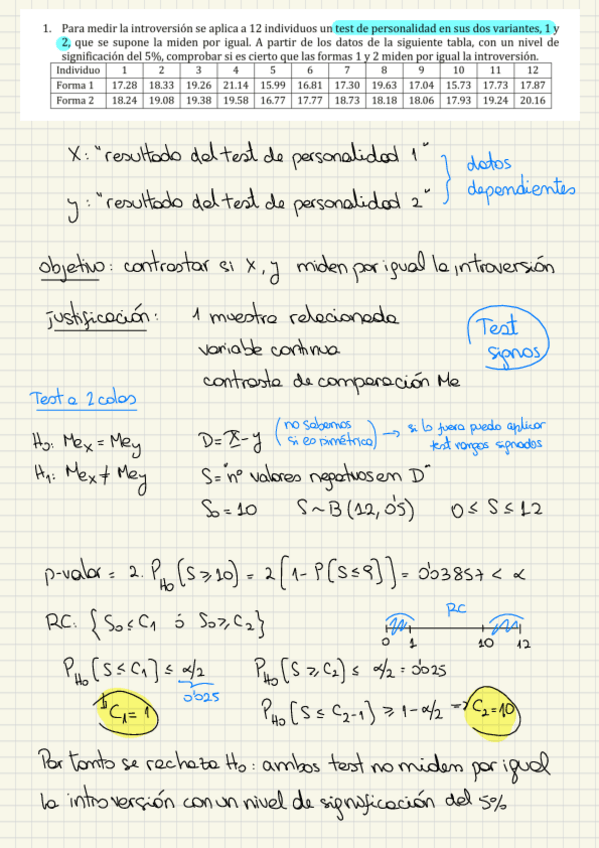 1. Para medir la introversión se aplica a 12 individuos un test de personalidad en sus dos variantes, 1 y
2, que se supone la miden por igual. A partir de los datos de la siguiente tabla, con un nivel de
significación del 5%, comprobar si es cierto que las formas 1 y 2 miden por igual la introversión.
Individuo 1 2 3 4 5 6 7 8 9 10 11 12
Forma 1 17.28 18.33 19.26 21.14 15.99 16.81 17.30 19.63 17.04 15.73 17.73 17.87
Forma 2 18.24 19.08 19.38 19.58 16.77 17.77 18.73 18.18 18.06 17.93 19.24 20.16
X: "resultado del test de personalidad 1"
y: "resultado del test de personalidad 2"
datos
dependientes
Objetivo: contrastar si X, y miden por igual la introversión
Justificación: 1 muestra relacionada
variable continua
contraste de comparación Me
Test
signos
Test a 2 colas
H₀: Meₓ = Me_y D = X - y (no sabemos si es simétrica) → si lo fuera puedo aplicar test rangos signados
H₁: Meₓ ≠ Me_y S = "nº valores negativos em D"
S₀ = 10 S ~ B(12, 0'5) 0 ≤ S ≤ 12
p-valor = 2. P_H₀ (S ≥ 10) = 2 [1 - P[S ≤ 9]] = 0'03857 < α
RC: {S₀ ≤ C₁ ó S₀ ≥ C₂}
RC
0 1 10 12
P_H₀ [S ≤ C₁] ≤ α/2 P_H₀ [S ≥ C₂] ≤ α/2 = 0'025
0'025
C₁ = 1 P_H₀ [S ≤ C₂-1] ≥ 1 - α/2 → C₂ = 10
Por tanto se rechaza H₀: ambos test no miden por igual
la introversión con un nivel de significación del 5%